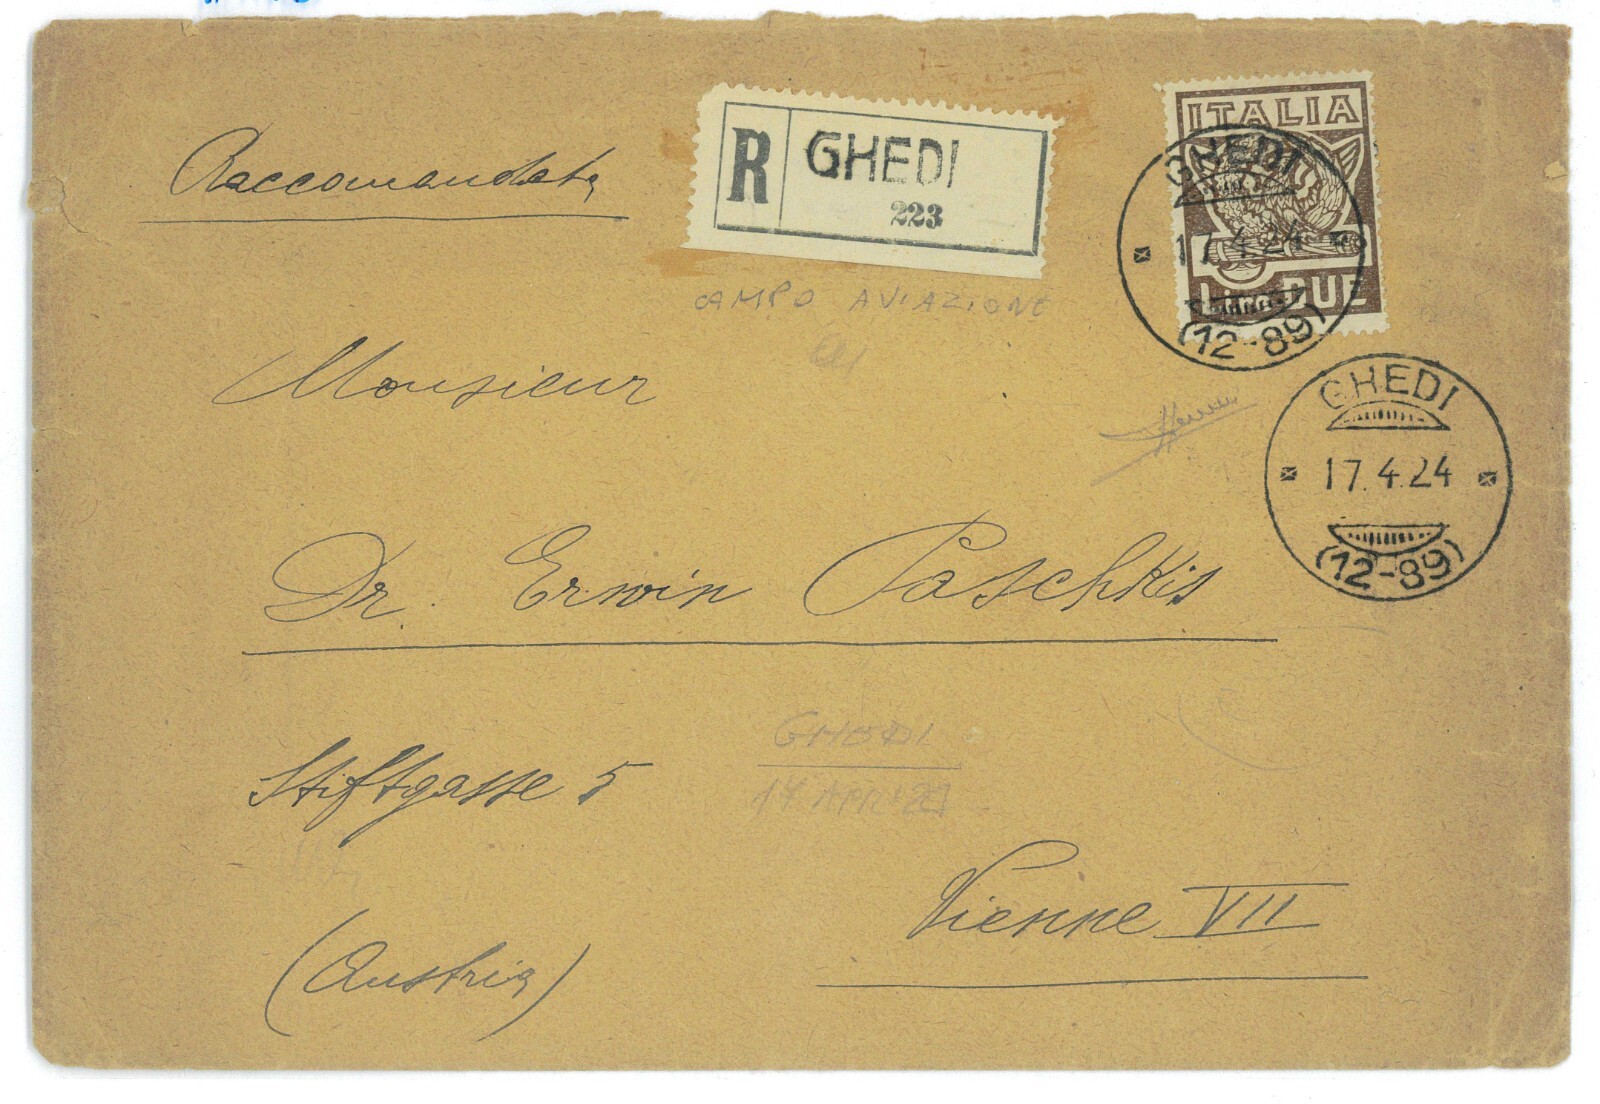 Raccomandata
R GHEDI
223
CAMPO AVIAZIONE
ITALIA
Lire DUE
GHEDI
17.4.24
(12-89)
GHEDI
17.4.24
(12-89)
Monsieur
Dr. Erwin Paschkis
GHEDI
Stiftgasse 5
Vienne VII
(Austria)